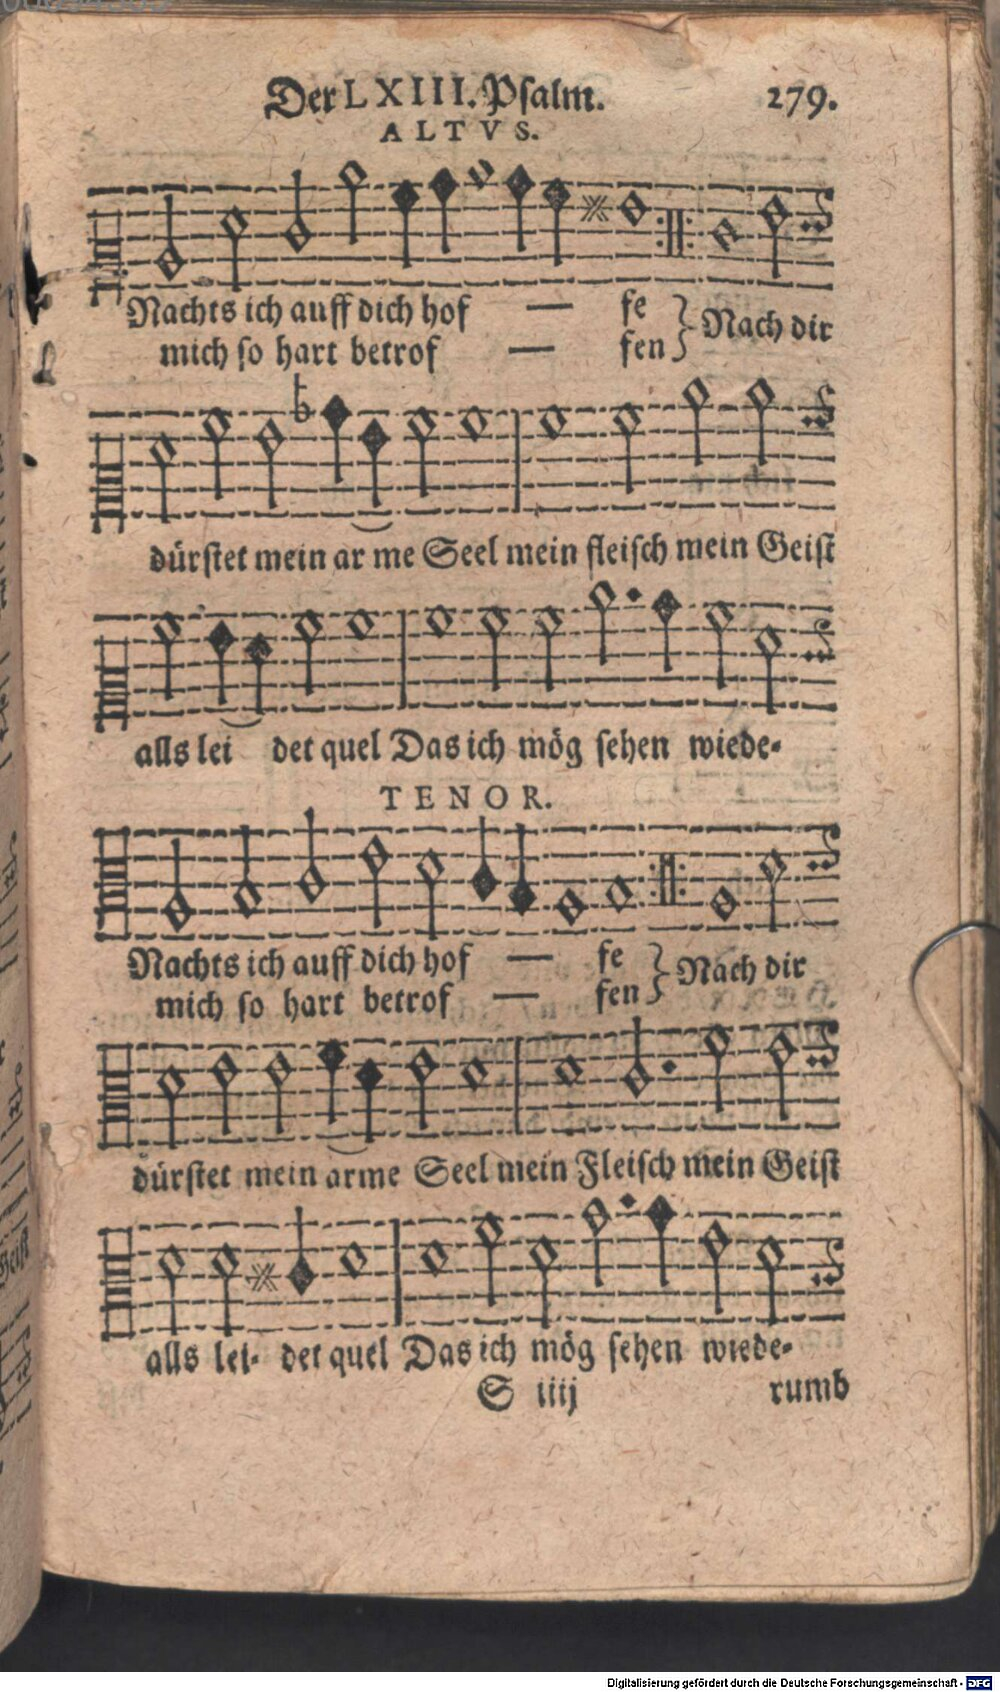 Der LXIII. Psalm. 279.
ALTVS.
Nachts ich auff dich hof — fe
mich so hart betrof — fen } Nach dir
dürstet mein ar me Seel mein fleisch mein Geist
alls lei det quel Das ich mög sehen wiede-
TENOR.
Nachts ich auff dich hof — fe
mich so hart betrof — fen } Nach dir
dürstet mein arme Seel mein Fleisch mein Geist
alls lei- det quel Das ich mög sehen wiede-
S iiij rumb
Digitalisierung gefördert durch die Deutsche Forschungsgemeinschaft - DFG